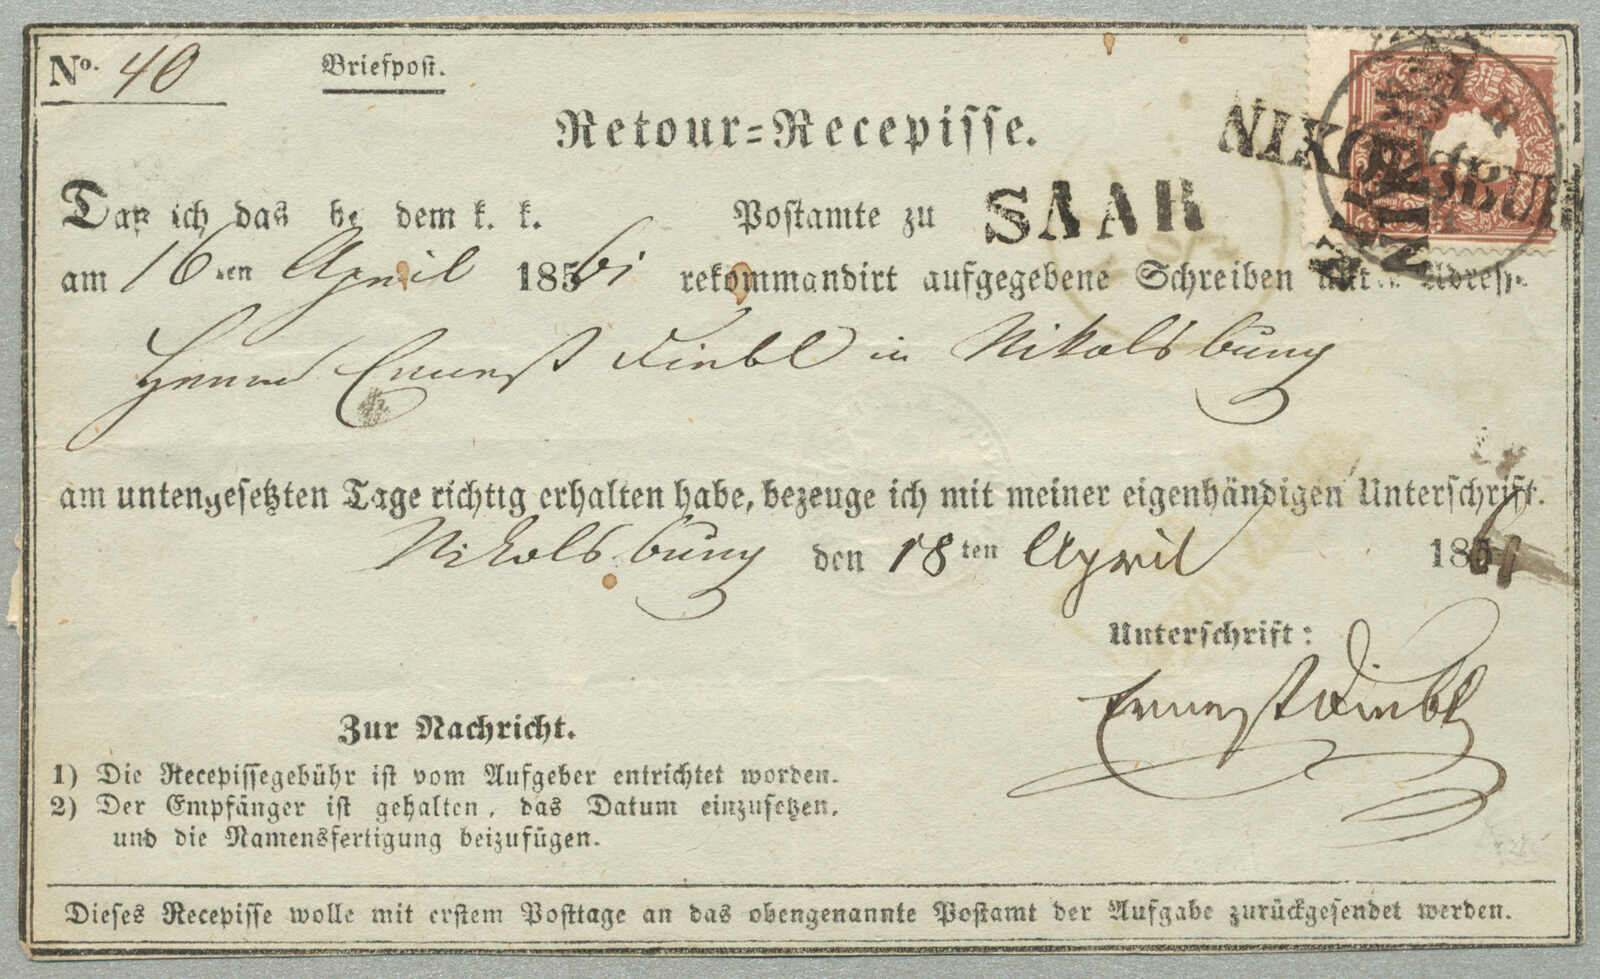 No. 40
Briefpost.
Retour=Recepisse.
NIKOLSBURG
Daß ich das bei dem k. k. Postamte zu SAAR
am 16ten April 1861 rekommandirt aufgegebene Schreiben mit der Adresse
Herrn Ernest Diebl in Nikolsburg
am untengesetzten Tage richtig erhalten habe, bezeuge ich mit meiner eigenhändigen Unterschrift.
Nikolsburg den 18ten April 1861
Unterschrift:
Ernest Diebl
Zur Nachricht.
1) Die Recepissegebühr ist vom Aufgeber entrichtet worden.
2) Der Empfänger ist gehalten, das Datum einzusetzen,
und die Namensfertigung beizufügen.
Dieses Recepisse wolle mit erstem Posttage an das obengenannte Postamt der Aufgabe zurückgesendet werden.